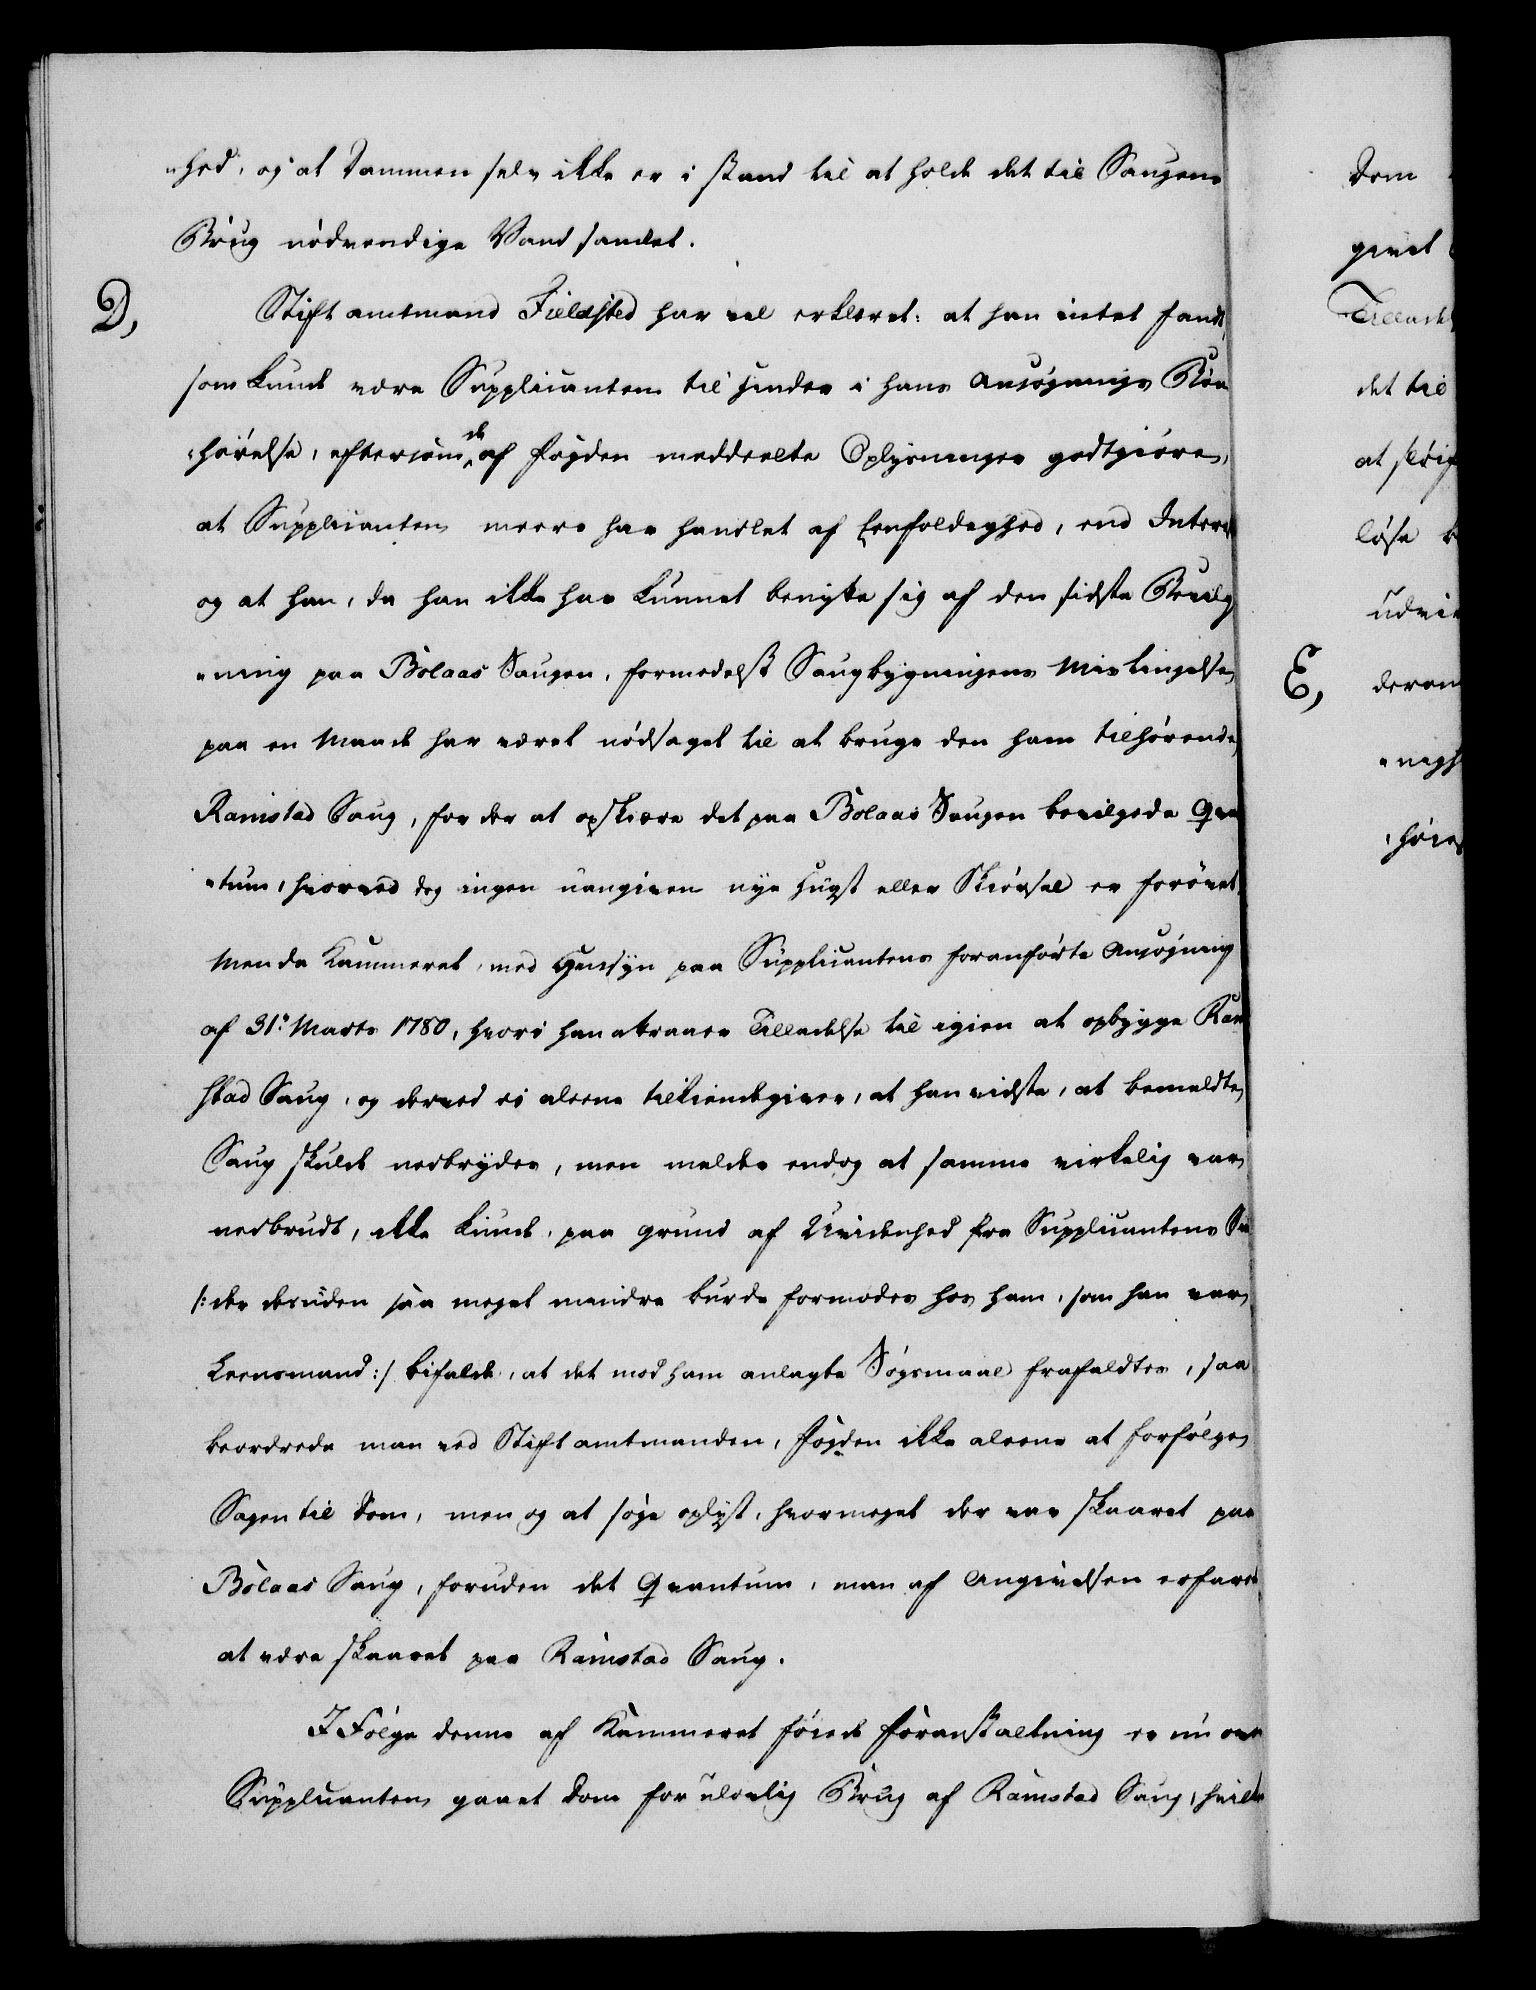 -hed, og at Dammen selv ikke er i stand til at holde det til Saugens
Brug nödvendige Vand samlet.
D, Stiftamtmand Fieldsted har vel erklæret: at han intet fandt,
som kunde være Supplicanten til Hinder i hans Ansögnings Bön-
-hörelse, eftersom de af Fogden meddeelte Oplysninger godtgiöre,
at Supplicanten meere har handlet af Eenfoldighed, end Interesse
og at han, da han ikke har kunnet benytte sig af den sidste Bevilg-
-ning paa Bölaas Saugen, formedelst Saugbygningens Mislingelse,
paa en Maade har været nödsaget til at bruge den ham tilhörende
Ramstad Saug, for der at opskiære det paa Bölaas Saugen bevilgede Qvan-
-tum, hvorved dog ingen uangiven nye Hugst eller Skiörsel er forövet.
Men da Kammeret, med Hensyn paa Supplicantens foranförte Ansögning
af 31te Marts 1780, hvori han attraaer Tilladelse til igien at opbygge Ram-
stad Saug, og derved ei aleene tilkiendegiver, at han vidste, at bemeldte
Saug skulde nedbrydes, men melder endog at samme virkelig var
nedbrudt, ikke kunde, paa Grund af Uvidenhed fra Supplicantens Side
/: der desuden saa meget mindre burde formodes hos ham, som han var
Leensmand :/ bifalde, at det mod ham anlagte Sögsmaal frafaldtes, saa
beordrede man ved Stiftamtmanden, Fogden ikke aleene at forfölge
Sagen til Dom, men og at söge oplyst, hvormeget der var skaaret paa
Bölaas Saug, foruden det Qvantum, man af Angivelsen erfarede
at være skaaret paa Ramstad Saug.
I Fölge denne af Kammeret föiede Foranstaltning er nu over
Supplicanten gaaet Dom for ulovlig Brug af Ramstad Saug, hvilken
Dom
givet
Tilladels
det til
at
löse
udvi
E, derom